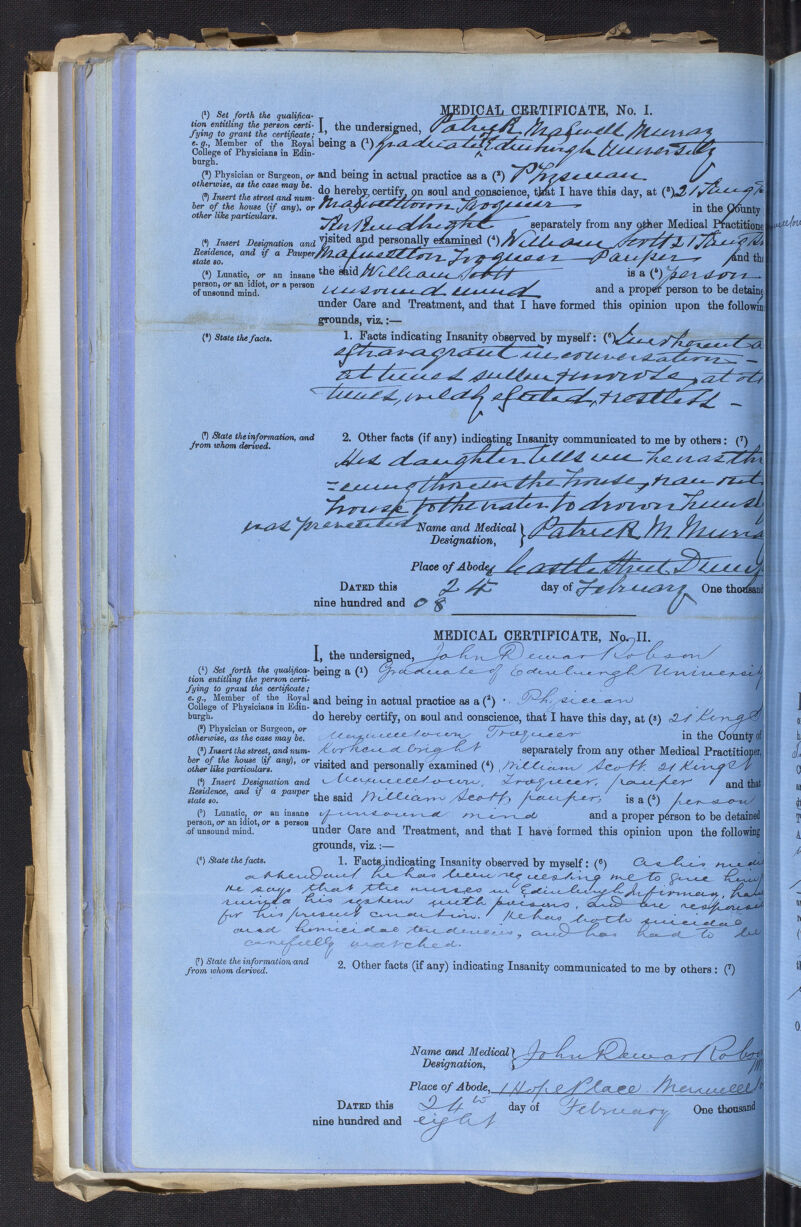 MEDICAL CERTIFICATE, No. I.
(¹) Set forth the qualifica-
tion entitling the person certi-
fying to grant the certificate;
e. g., Member of the Royal
College of Physicians in Edin-
burgh.
I, the undersigned, Patrick Maxwell Murray
being a (¹) graduate of Edinburgh University
(²) Physician or Surgeon, or
otherwise, as the case may be.
and being in actual practice as a (²) Physician
(³) Insert the street and num-
ber of the house (if any), or
other like particulars.
do hereby certify, on soul and conscience, that I have this day, at (³) 21 King St
Maxwelltown Troqueer in the County
Kirkcudbright separately from any other Medical Practitione
(⁴) Insert Designation and
Residence, and if a Pauper
state so.
visited and personally examined (⁴) William Scott 21 King St
Maxwelltown Troqueer Pauper and th
(⁵) Lunatic, or an insane
person, or an idiot, or a person
of unsound mind.
the said William Scott is a (⁵) person
unsound mind and a proper person to be detaine
under Care and Treatment, and that I have formed this opinion upon the followin
grounds, viz.:—
(⁶) State the facts.
1. Facts indicating Insanity observed by myself: (⁶) Incoherent a
extravagrant in conversation —
at times sullen & morose, at oth
times, wildly excited, & restless —
(⁷) State the information, and
from whom derived.
2. Other facts (if any) indicating Insanity communicated to me by others: (⁷)
His daughter tells me he was thr
=ening those in the house, ran out
house to the water to drown himse
was prevented
Name and Medical Designation, Patrick M Murra
Place of Abode, Castle Street Dumf
DATED this 24 day of February One thousand
nine hundred and 08
MEDICAL CERTIFICATE, No. II.
I, the undersigned, John Dewar Robson
(¹) Set forth the qualifica-
tion entitling the person certi-
fying to grant the certificate;
e. g., Member of the Royal
College of Physicians in Edin-
burgh.
being a (¹) Graduate of Edinburgh Universit
and being in actual practice as a (²) Physician
(²) Physician or Surgeon, or
otherwise, as the case may be.
do hereby certify, on soul and conscience, that I have this day, at (³) 21 King St
Maxwelltown Troqueer in the County of
(³) Insert the street, and num-
ber of the house (if any), or
other like particulars.
Kirkcudbright separately from any other Medical Practitioner,
visited and personally examined (⁴) William Scott 21 King St
(⁴) Insert Designation and
Residence, and if a pauper
state so.
Maxwelltown, Troqueer, pauper and that
the said William Scott, pauper, is a (⁵) person
(⁵) Lunatic, or an insane
person, or an idiot, or a person
of unsound mind.
of unsound mind and a proper person to be detained
under Care and Treatment, and that I have formed this opinion upon the following
grounds, viz.:—
(⁶) State the facts.
1. Facts indicating Insanity observed by myself: (⁶) As his medi
attendant he has been requesting me to give him
He says that the nurses in Edinburgh Infirmary, hav
ruined his system with poisons, and are responsi
for his present condition. He has both suicidal
and homicidal tendencies, and has had to be
carefully watched.
(⁷) State the information and
from whom derived.
2. Other facts (if any) indicating Insanity communicated to me by others: (⁷)
Name and Medical Designation, John Dewar Robso
Place of Abode, 1 Hope Place Maxwellt
DATED this 24th day of February One thousand
nine hundred and eight